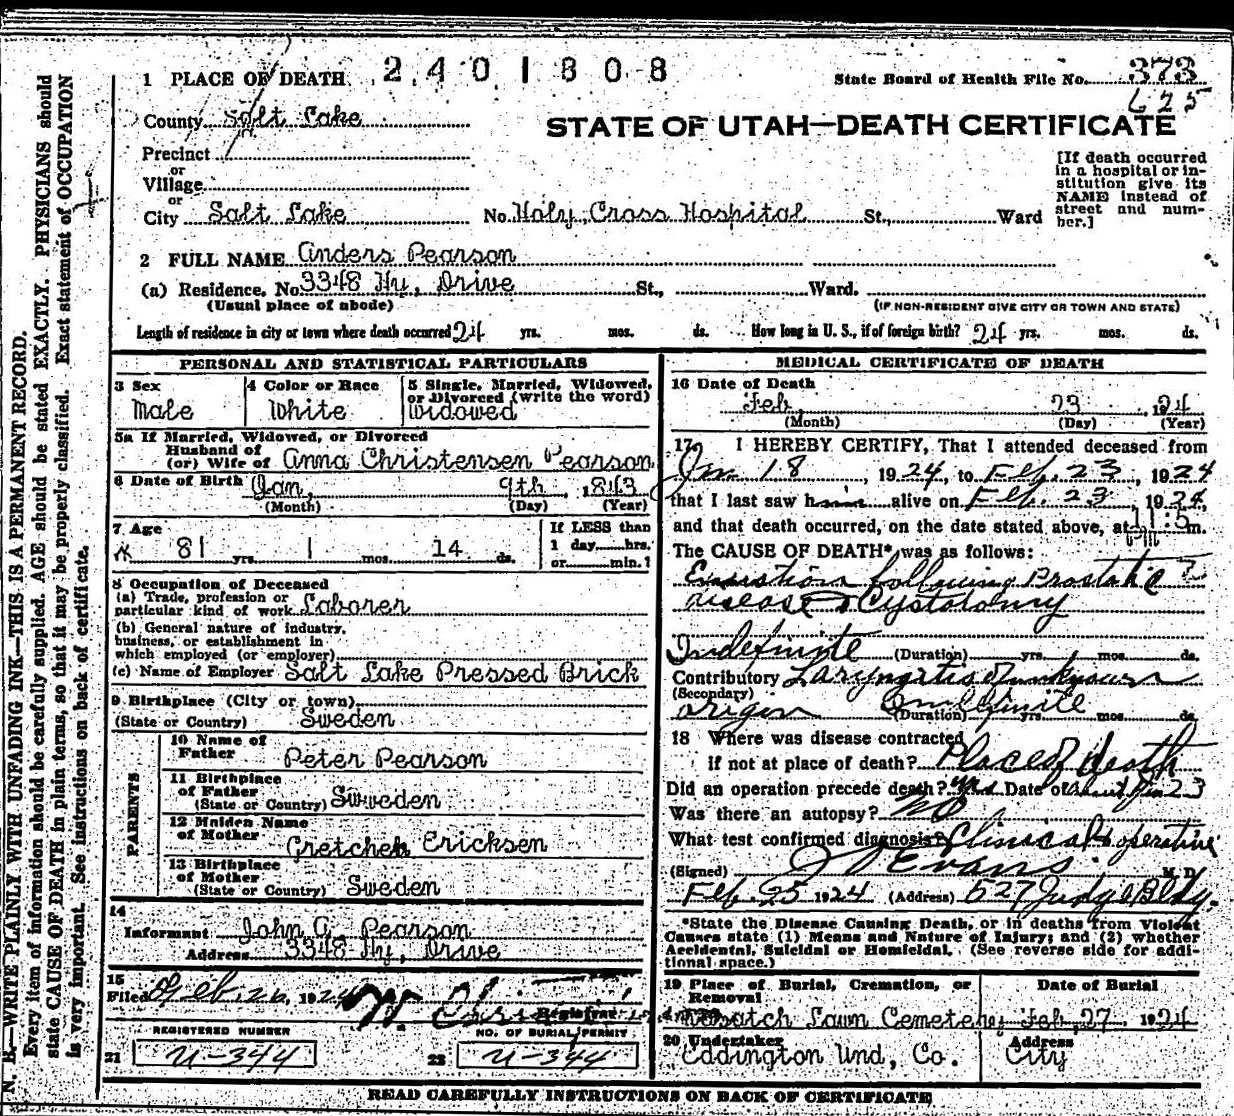 1 PLACE OF DEATH 2401808 State Board of Health File No. 373
625
County Salt Lake
STATE OF UTAH—DEATH CERTIFICATE
Precinct
or
Village
or
City Salt Lake No. Holy Cross Hospital St., Ward
[If death occurred in a hospital or in-
stitution give its
NAME instead of
street and num-
ber.]
2 FULL NAME Anders Pearson
(a) Residence, No. 3348 Hy, Drive St., Ward.
(Usual place of abode) (IF NON-RESIDENT GIVE CITY OR TOWN AND STATE)
Length of residence in city or town where death occurred 24 yrs. mos. ds. How long in U. S., if of foreign birth? 24 yrs. mos. ds.
PERSONAL AND STATISTICAL PARTICULARS
3 Sex
Male
4 Color or Race
White
5 Single, Married, Widowed,
or Divorced (write the word)
Widowed
5a If Married, Widowed, or Divorced
Husband of
(or) Wife of Anna Christensen Pearson
6 Date of Birth Jan, 9th, 1843
(Month) (Day) (Year)
7 Age
81 yrs. 1 mos. 14 ds.
If LESS than
1 day......hrs.
or......min.?
8 Occupation of Deceased
(a) Trade, profession or
particular kind of work Laborer
(b) General nature of industry,
business, or establishment in
which employed (or employer)
(c) Name of Employer Salt Lake Pressed Brick
9 Birthplace (City or town)
(State or Country) Sweden
PARENTS
10 Name of
Father Peter Pearson
11 Birthplace
of Father
(State or Country) Sweden
12 Maiden Name
of Mother Gretchen Ericksen
13 Birthplace
of Mother
(State or Country) Sweden
14
Informant John A. Pearson
Address 3348 Hy, Drive
15
Filed Feb. 26, 1924
Registrar
REGISTERED NUMBER NO. OF BURIAL PERMIT
21 U-344 22 U-344
MEDICAL CERTIFICATE OF DEATH
16 Date of Death
Feb, 23, 1924
(Month) (Day) (Year)
17. I HEREBY CERTIFY, That I attended deceased from
Jan 18 1924, to Feb. 23, 1924
that I last saw him alive on Feb. 23, 1924,
and that death occurred, on the date stated above, at 11:5 m.
The CAUSE OF DEATH* was as follows:
following Prostatic
disease & Cystotomy
Indefinite (Duration) yrs. mos. ds.
Contributory Laryngitis of unknown
(Secondary)
origin Indefinite
(Duration) yrs. mos. ds.
18 Where was disease contracted
if not at place of death? Place of death
Did an operation precede death? Yes Date of Jan 23
Was there an autopsy? No
What test confirmed diagnosis? Clinical & operative
(Signed) J P Evans M. D.
Feb. 25 1924 (Address) 627 Judge Bldg.
*State the Disease Causing Death, or in deaths from Violent
Causes state (1) Means and Nature of Injury; and (2) whether
Accidental, Suicidal or Homicidal. (See reverse side for addi-
tional space.)
19 Place of Burial, Cremation, or
Removal
Wasatch Lawn Cemetery
Date of Burial
Feb, 27, 1924
20 Undertaker
Eddington Und, Co.
Address
City
READ CAREFULLY INSTRUCTIONS ON BACK OF CERTIFICATE
N. B.—WRITE PLAINLY WITH UNFADING INK—THIS IS A PERMANENT RECORD.
Every item of information should be carefully supplied. AGE should be stated EXACTLY. PHYSICIANS should
state CAUSE OF DEATH in plain terms, so that it may be properly classified. Exact statement of OCCUPATION
is very important. See instructions on back of certificate.